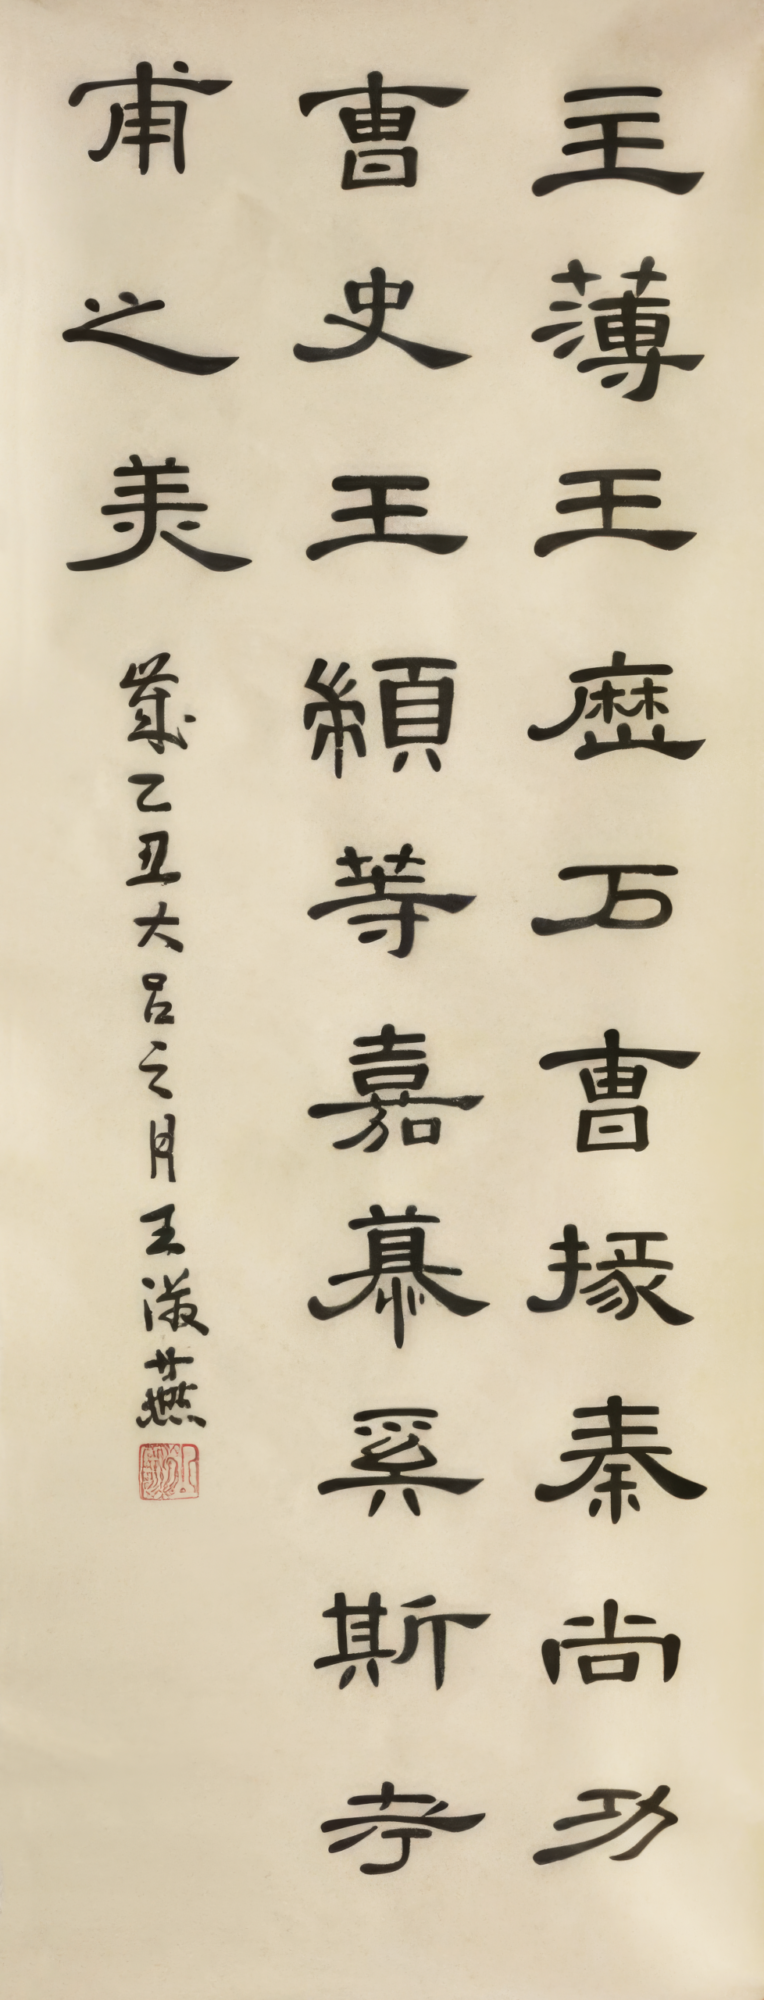 主薄王歷石曹掾秦尚功
曹史王顓等嘉慕奚斯考
甫之美
歲乙丑大呂之月王淑燕